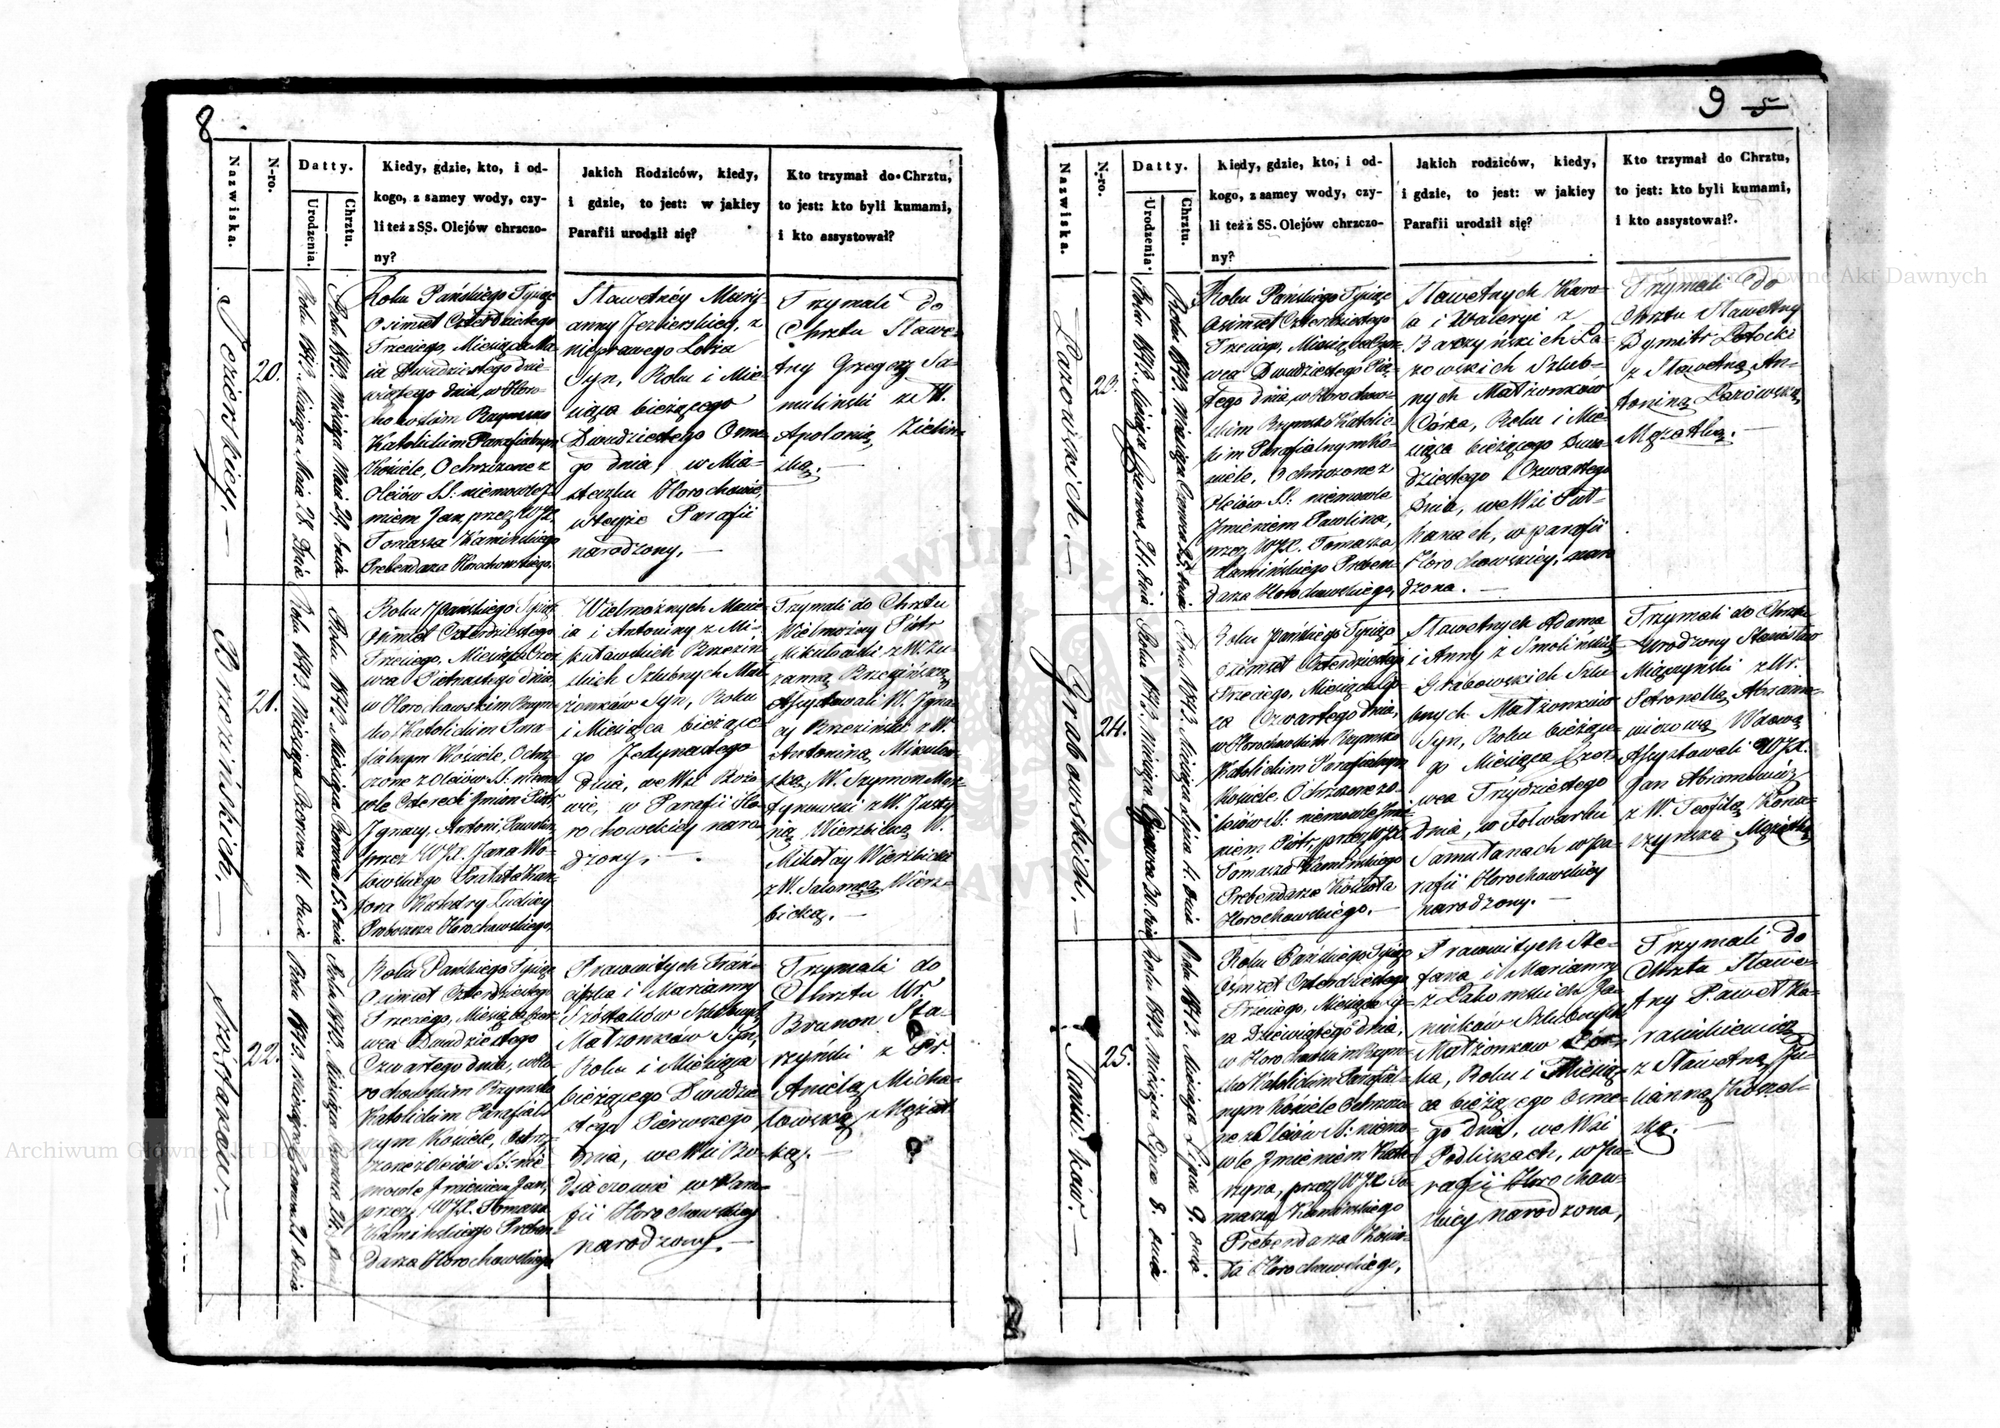 8
Nazwiska.
N-ro.
Datty.
Urodzenia.
Chrztu.
Kiedy, gdzie, kto, i od-
kogo, z samey wody, czy-
li też z SS. Olejów chrzczo-
ny?
Jakich Rodziców, kiedy,
i gdzie, to jest: w jakiey
Parafii urodził się?
Kto trzymał do Chrztu,
to jest: kto byli kumami,
i kto assystował?
Jezierskiey.
20.
Roku 1843. Miesiąca Maia 28. Dnia
Roku 1843. Miesiąca Maia 29. dnia
Roku Pańskiego Tysiąc
Osimset Czterdziestego
Trzeciego, Miesiąca Ma-
ia Dwudziestego Dzie-
wiątego dnia, w Horo-
chowskim Rzymsko
Katolickim Parafialnym
Kościele, Ochrzczone z
Oleiów SS: niemowle I-
mieniem Jan, przez WJX.
Tomasza Kamińskiego
Prebendarza Horochowskiego.
Sławetnéy Mary-
anny Jezierskiey, z
nieprawego Łoża
Syn, Roku i Mie-
siąca bieżącego
Dwudziestego Osme-
go dnia, w Mia-
steczku Horochowie,
w teyże Parafii
narodzony. —
Trzymali do
Chrztu Sławe-
tny Grzegorz Sa-
muliński z W.
Apolonią Zielin-
ską. —
Brzezińskich.
21.
Roku 1843. Miesiąca Czerwca 11. dnia
Roku 1843. Miesiąca Czerwca 15. dnia
Roku Pańskiego Tysiąc
Osimset Czterdziestego
Trzeciego, Miesiąca Czer-
wca Piętnastego dnia,
w Horochowskim Rzym-
sko Katolickim Para-
fialnym Kościele, Ochrz-
czone z Oleiów SS: niemo-
wle Czterech Imion Piotr
Ignacy, Antoni, Pawelin,
przez WJX. Jana Mo-
Prałata Kan-
tora Katedry Łuckiey
Proboszcza Horochowskiego.
Wielmożnych Macie-
ia i Antoniny z Mi-
kułowskich Brzeziń-
skich Szlubnych Mał-
żonków Syn, Roku
i Miesiąca bieżące-
go Jedynastego
Dnia, we Wsi
w Parafii Ho-
rochowskiey naro-
dzony. —
Trzymali do Chrztu
Wielmożny Piotr
Mikulowski z W. Zu-
zanną Brzezińską
Assystowali W. Igna-
cy Brzeziński z W.
Antoniną Mikulow-
ską, W. Szymon Mar-
tynowski z W. Justy-
nią Wierzbicką W.
Mikołay Wierzbicki
z W. Salomeą Wierz-
bicką. —
Szóstaków.
22.
Roku 1843. Miesiąca Czerwca 21 dnia
Roku 1843. Miesiąca Czerwca 24. dnia
Roku Pańskiego Tysiąc
Osimset Czterdziestego
Trzeciego, Miesiąca Czer-
wca Dwudziestego
Czwartego dnia, w Ho-
rochowskim Rzymsko
Katolickim Parafial-
nym Kościele, Ochrz-
czone z Oleiów SS: nie-
mowle Imieniem Jan,
przez WJX. Tomasza
Kamińskiego Preben-
darza Horochowskiego
Prawowitych Fran-
ciszka i Marianny
Szóstaków Szlubnych
Małżonków Syn,
Roku i Miesiąca
bieżącego Dwudzie-
stego Pierwszego
Dnia, we Wsi
w Para-
fii Horochowskiey
narodzony. —
Trzymali do
Chrztu Ur.
Brunon Sta-
rzyński z Ur.
Anielą Micha-
łowską Mężat-
ką. —
9 5
Nazwiska.
N-ro.
Datty.
Urodzenia.
Chrztu.
Kiedy, gdzie, kto, i od-
kogo, z samey wody, czy-
li też z SS. Olejów chrzczo-
ny?
Jakich rodziców, kiedy,
i gdzie, to jest: w jakiey
Parafii urodził się?
Kto trzymał do Chrztu,
to jest: kto byli kumami,
i kto assystował?
Łazowskich.
23.
Roku 1843. Miesiąca Czerwca 24. dnia
Roku 1843. Miesiąca Czerwca 25. dnia
Roku Pańskiego Tysiąc
Osimset Czterdziestego
Trzeciego, Miesiąca Czer-
wca Dwudziestego Pią-
tego dnia, w Horochow-
skim Rzymsko Katolic-
kim Parafialnym Ko-
ściele, Ochrzczone z
Oleiów SS: niemowle
Imieniem Paulina,
przez WJX. Tomasza
Kamińskiego Preben-
darza Horochowskiego,
Sławetnych Karo-
la i Waleryi z
Baczyńskich Ła-
zowskich Szlub-
nych Małżonków
Córka, Roku i Mie-
siąca bieżącego Dwu-
dziestego Czwartego
Dnia, we Wsi
w parafii
Horochowskiey, naro-
dzona. —
Trzymali do
Chrztu Sławetny
Dymitr Potocki
z Sławetną An-
toniną Łazowską
Mężatką. —
Grabowskich.
24.
Roku 1843. Miesiąca Czerwca 30. dnia
Roku 1843. Miesiąca Lipca 4. dnia
Roku Pańskiego Tysiąc
Osimset Czterdziestego
Trzeciego, Miesiąca Lip-
ca Czwartego dnia,
w Horochowskim Rzymsko
Katolickim Parafialnym
Kościele, Ochrzczone z O-
leiów SS: niemowle Imie-
niem Piotr, przez WJX.
Tomasza Kamińskiego
Prebendarza Kościoła
Horochowskiego. —
Sławetnych Adama
i Anny z Smolińskich
Grabowskich Szlu-
bnych Małżonków
Syn, Roku bieżące-
go Miesiąca Czer-
wca Trzydziestego
Dnia, w Folwarku
w Pa-
rafii Horochowskiey
narodzony. —
Trzymali do Chrztu
Urodzony Stanisław
Miączyński z Ur.
Petronellą Abramo-
wiczową Wdową
Assystowali WJX.
Jan Abramowicz
z W. Teofilą
Mężatką
25.
Roku 1843. Miesiąca Lipca 8. dnia
Roku 1843. Miesiąca Lipca 9. dnia.
Roku Pańskiego Tysiąc
Osimset Czterdziestego
Trzeciego, Miesiąca Lip-
ca Dziewiątego dnia,
w Horochowskim Rzym-
sko Katolickim Parafial-
nym Kościele Ochrzczo-
ne z Oleiów SS: niemo-
wle Imieniem Kata-
rzyna, przez WJX To-
masza Kamińskiego
Prebendarza Kościo-
ła Horochowskiego.
Prawowitych Ste-
fana i Marianny
z
Szlubnych
Małżonków Cór-
ka, Roku i Miesią-
ca bieżącego Osme-
go Dnia, we Wsi
Podliskach, w Pa-
rafii Horochow-
skiey narodzona,
Trzymali do
Chrztu Sławe-
tny Paweł
z Sławetną Ju-
lianną
ską. —
Archiwum Główne Akt Dawnych
Archiwum Główne Akt Dawnych